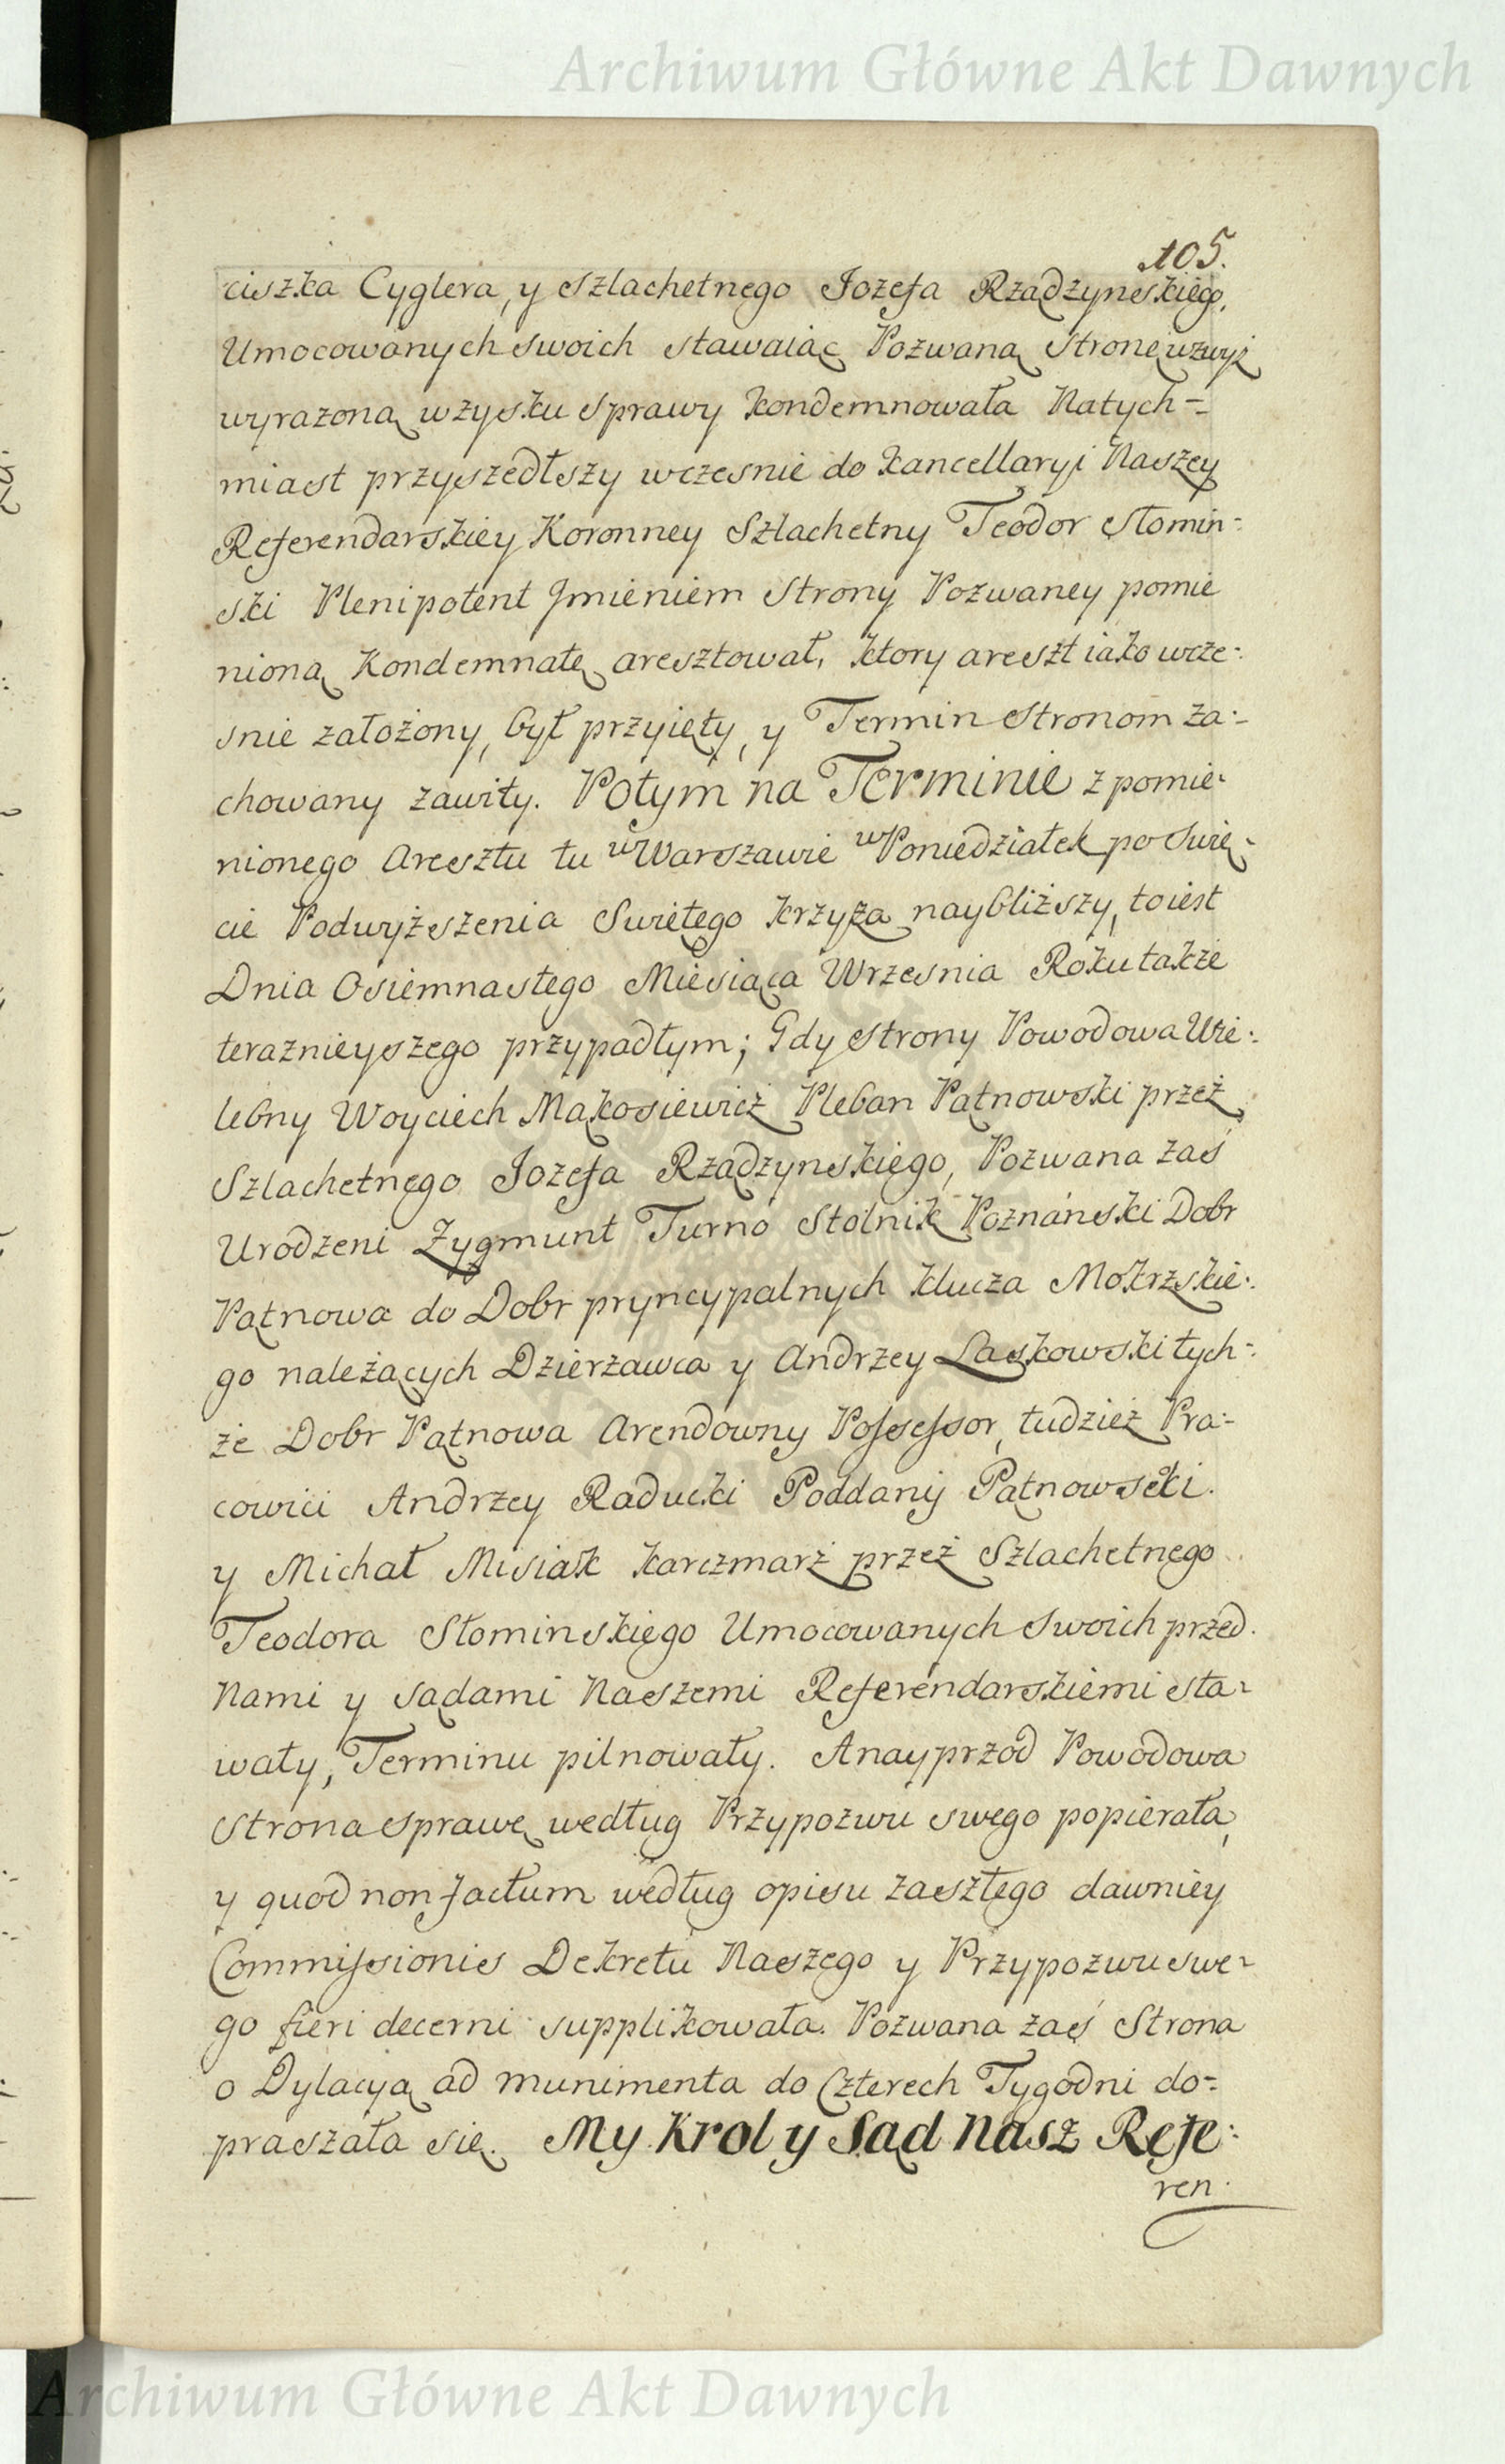 Archiwum Główne Akt Dawnych
105.
ciszka Cyglera, y Szlachetnego Jozefa Rządzynskiego,
Umocowanych swoich stawaiąc Pozwaną Stronę wzwyż
wyrazoną wzysku sprawy kondemnowała Natych=
miast przyszedłszy wczesnie do kancellaryi Naszey
Referendarskiey Koronney Szlachetny Teodor Słomin:
ski Plenipotent Jmieniem Strony Pozwaney pomie
nioną Kondemnatę aresztował, ktory areszt iako wcze:
snie założony, był przyięty, y Termin Stronom za:
chowany zawity. Potym na Terminie z pomie:
nionego Aresztu tu w Warszawie w Poniedziałek po Swię:
cie Podwyższenia Swiętego Krzyża naybliższy, to iest
Dnia Osiemnastego Miesiąca Wrzesnia Roku także
teraznieyszego przypadłym; Gdy Strony Powodowa Wie:
lebny Woyciech Makosiewicz Pleban Pątnowski przez
Szlachetnego Jozefa Rządzynskiego, Pozwana zaś
Urodzeni Zygmunt Turno Stolnik Poznański Dobr
Pątnowa do Dobr pryncypalnych klucza Mokrzskie:
go należących Dzierzawca y Andrzey Laskowski tych:
że Dobr Pątnowa Arendowny Possessor, tudzież Pra:
cowici Andrzey Raducki Poddany Pątnowski.
y Michał Misiak karczmarz przez Szlachetnego
Teodora Słominskiego Umocowanych swoich przed
Nami y sądami Naszemi Referendarskiemi sta:
wały, Terminu pilnowały. A nayprzód Powodowa
Strona sprawę według Przypozwu swego popierała,
y quod non factum według opisu zaszłego dawniey
Commissionis Dekretu Naszego y Przypozwu swe:
go fieri decerni supplikowała. Pozwana zaś Strona
o Dylacyą ad munimenta do Czterech Tygodni do=
praszała się. My Krol y Sąd Nasz Refe:
ren.
Archiwum Główne Akt Dawnych